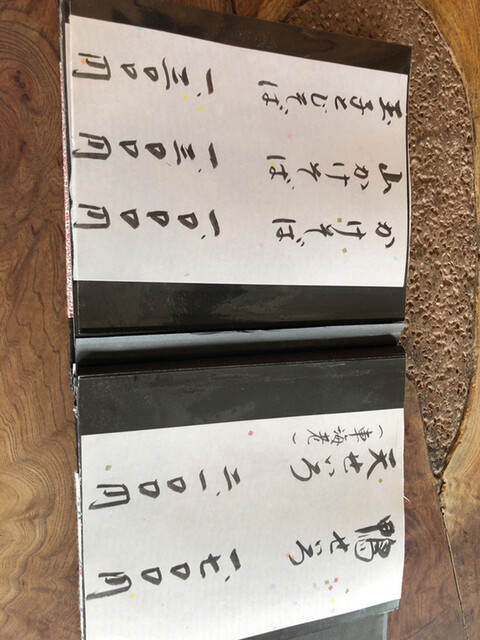 鴨せいろ 一、七〇〇円
天せいろ（車海老） 二、一〇〇円
かけそば 一、〇〇〇円
山かけそば 一、三〇〇円
玉子とじそば 一、三〇〇円